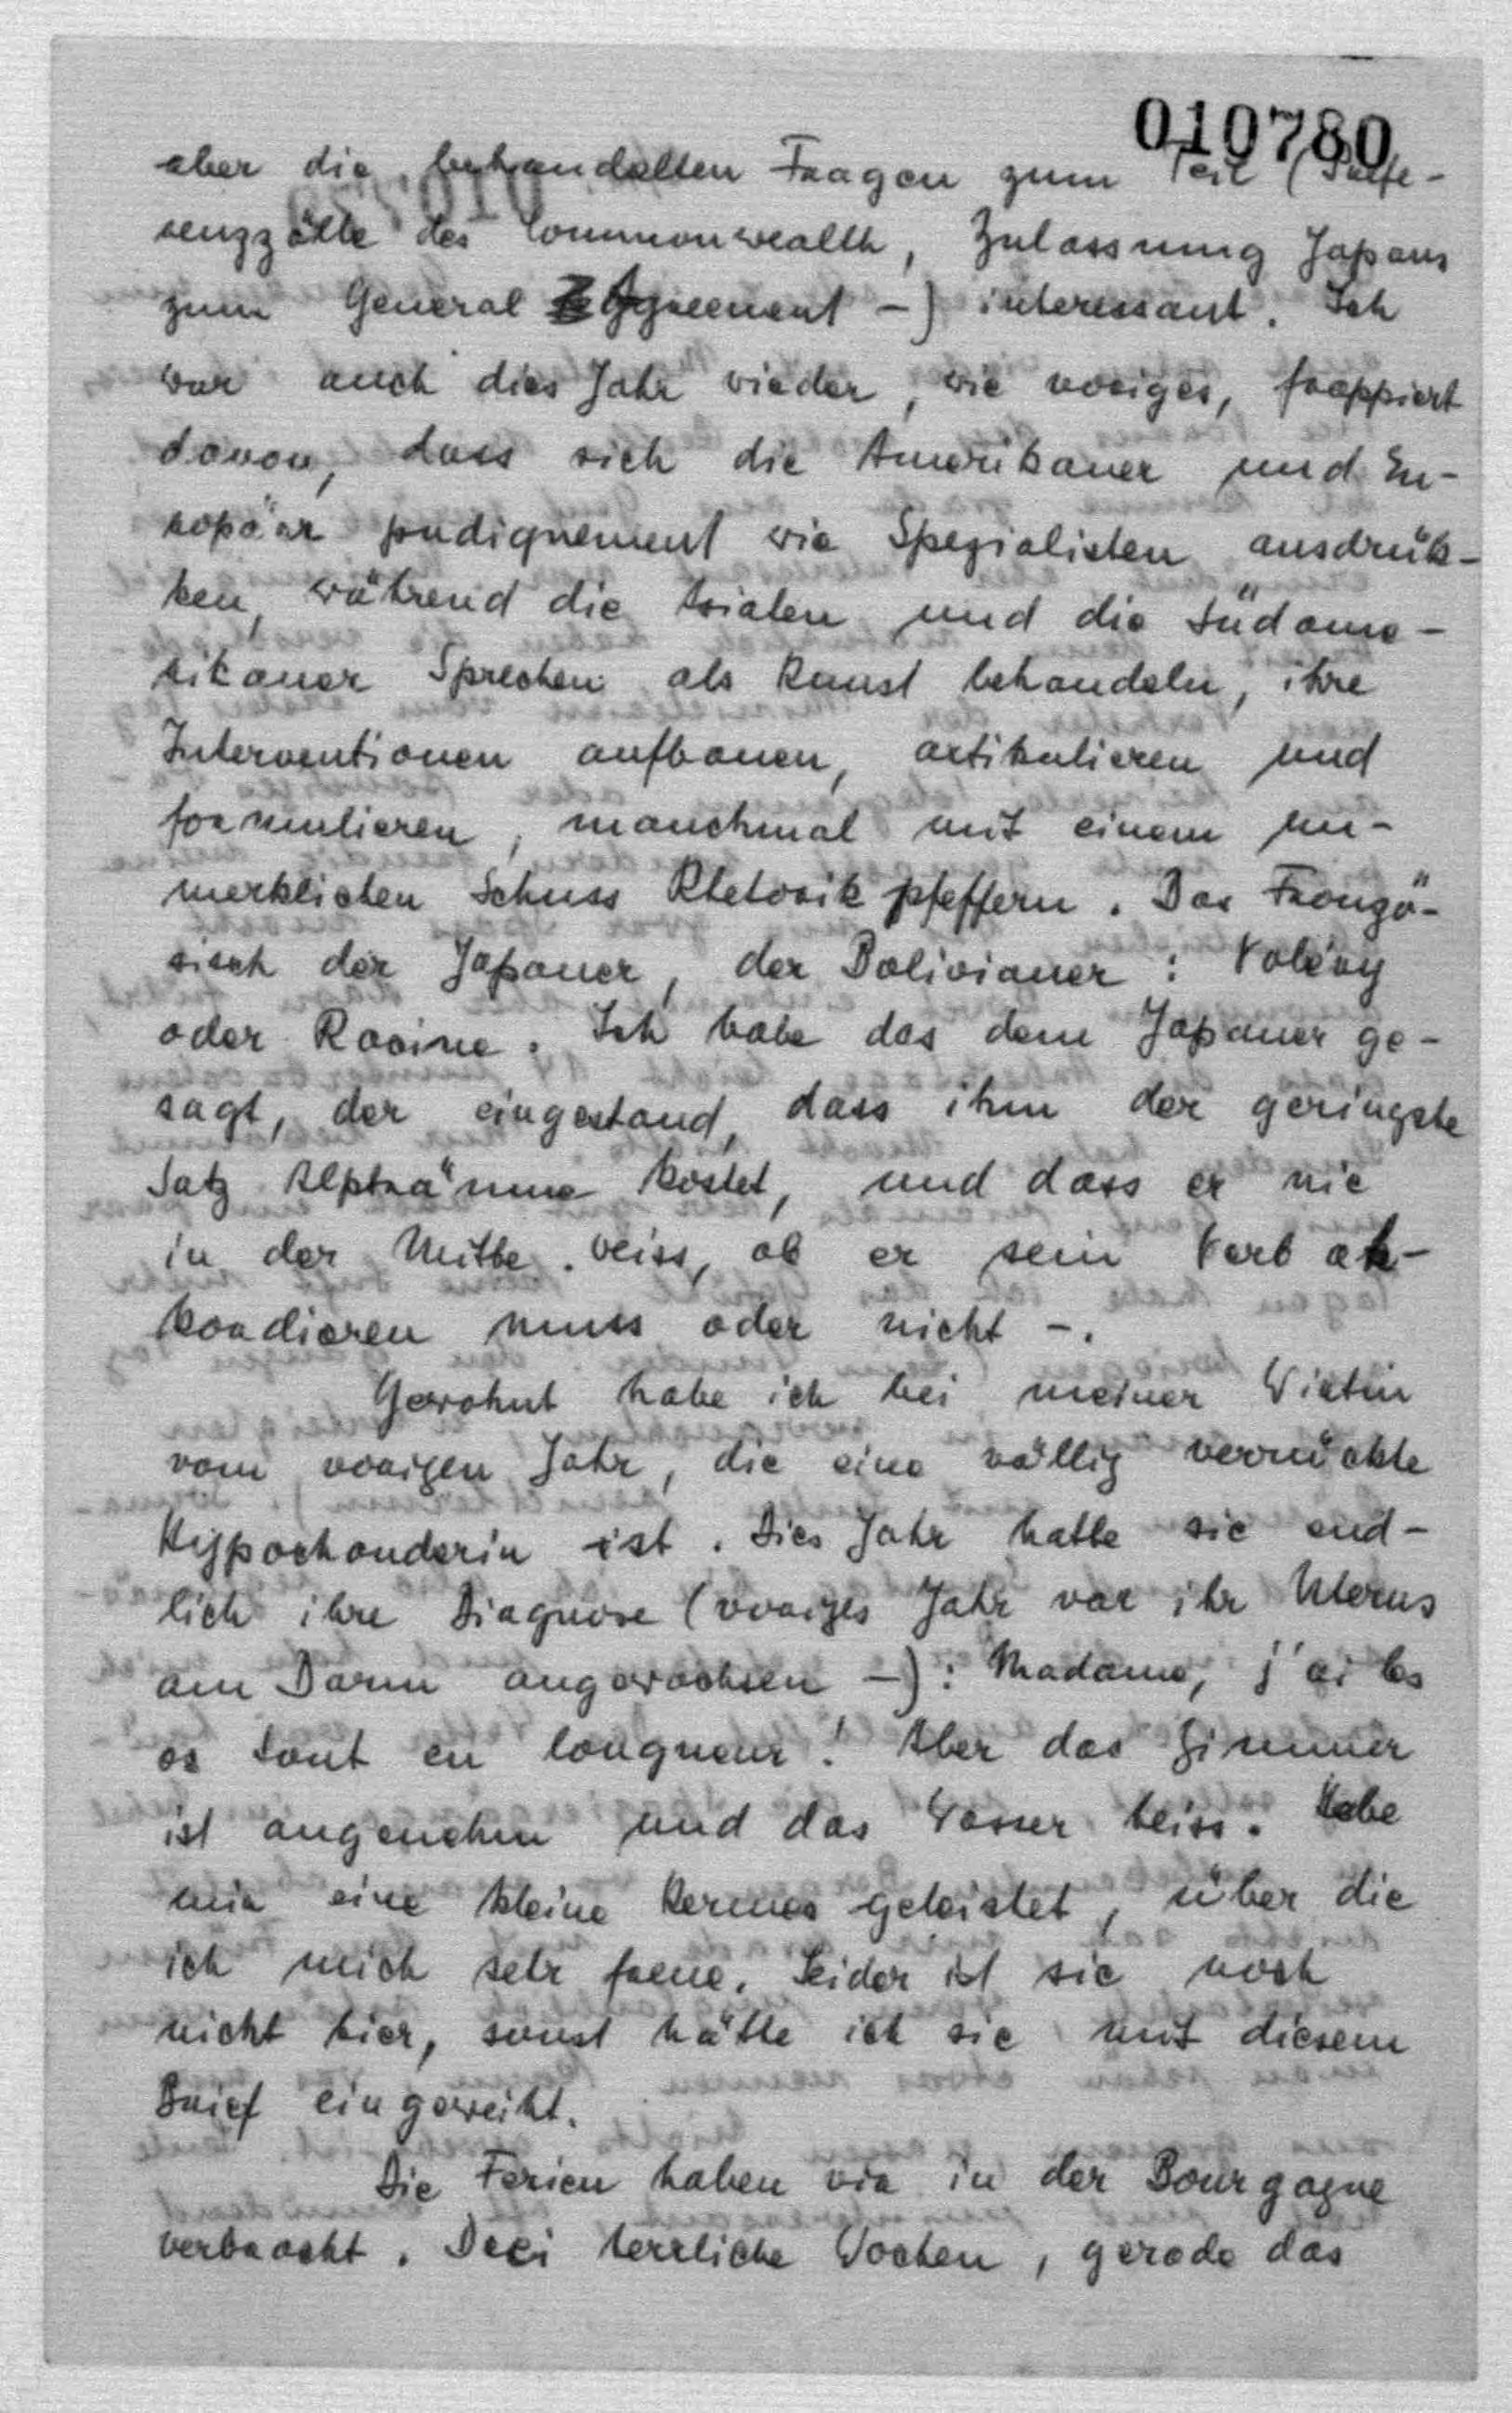 010780
aber die behandelten Fragen zum Teil (Präfe-
renzzölle des Commonwealth, Zulassung Japans
zum General Agreement -) interessant. Ich
war auch dies Jahr wieder, wie voriges, frappiert
davon, dass sich die Amerikaner und Eu-
ropäer pudiquement wie Spezialisten ausdrük-
ken, während die Asiaten und die Südame-
rikaner Sprechen als Kunst behandeln, ihre
Interventionen aufbauen, artikulieren und
formulieren, manchmal mit einem un-
merklichen Schuss Rhetorik pfeffern. Das Franzö-
sisch der Japaner, der Bolivianer: Valéry
oder Racine. Ich habe das dem Japaner ge-
sagt, der eingestand, dass ihm der geringste
Satz Alpträume kostet, und dass er nie
in der Mitte weiss, ob er sein Verb ak-
kordieren muss oder nicht -.
Gewohnt habe ich bei meiner Wirtin
vom vorigen Jahr, die eine völlig verrückte
Hypochonderin ist. Dies Jahr hatte sie end-
lich ihre Diagnose (voriges Jahr war ihr Uterus
am Darm angewachsen -): Madame, j'ai les
os tout en longueur! Aber das Zimmer
ist angenehm und das Wasser heiss. Habe
mir eine kleine Hermes geleistet, über die
ich mich sehr freue. Leider ist sie noch
nicht hier, sonst hätte ich sie mit diesem
Brief eingeweiht.
Die Ferien haben wir in der Bourgogne
verbracht. Drei herrliche Wochen, gerade das